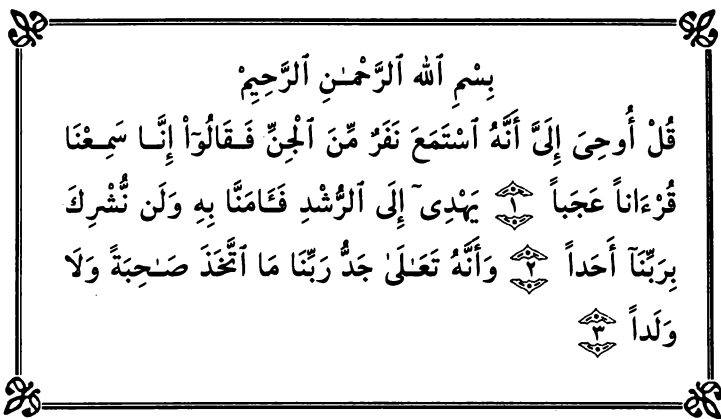 بِسْمِ ٱللهِ ٱلرَّحْمَـٰنِ ٱلرَّحِيمِْ
قُلْ أُوحِىَ إِلَىَّ أَنَّهُ ٱسْتَمَعَ نَفَرٌ مِّنَ ٱلْجِنِّ فَـقَالُوٓا۟ إِنَّـا سَمِـعْنَا
قُرْءَاناً عَجَباً ١ يَهْدِىٓ إِلَى ٱلرُّشْدِ فَـَٔامَنَّا بِهِ وَلَن نُّشْرِكَ
بِرَبِّنَآ أَحَداً ٢ وَأَنَّهُ تَعَـٰلَىٰ جَدُّ رَبِّنَا مَا ٱتَّخَذَ صَـٰحِبَةً وَلَا
وَلَداً ٣